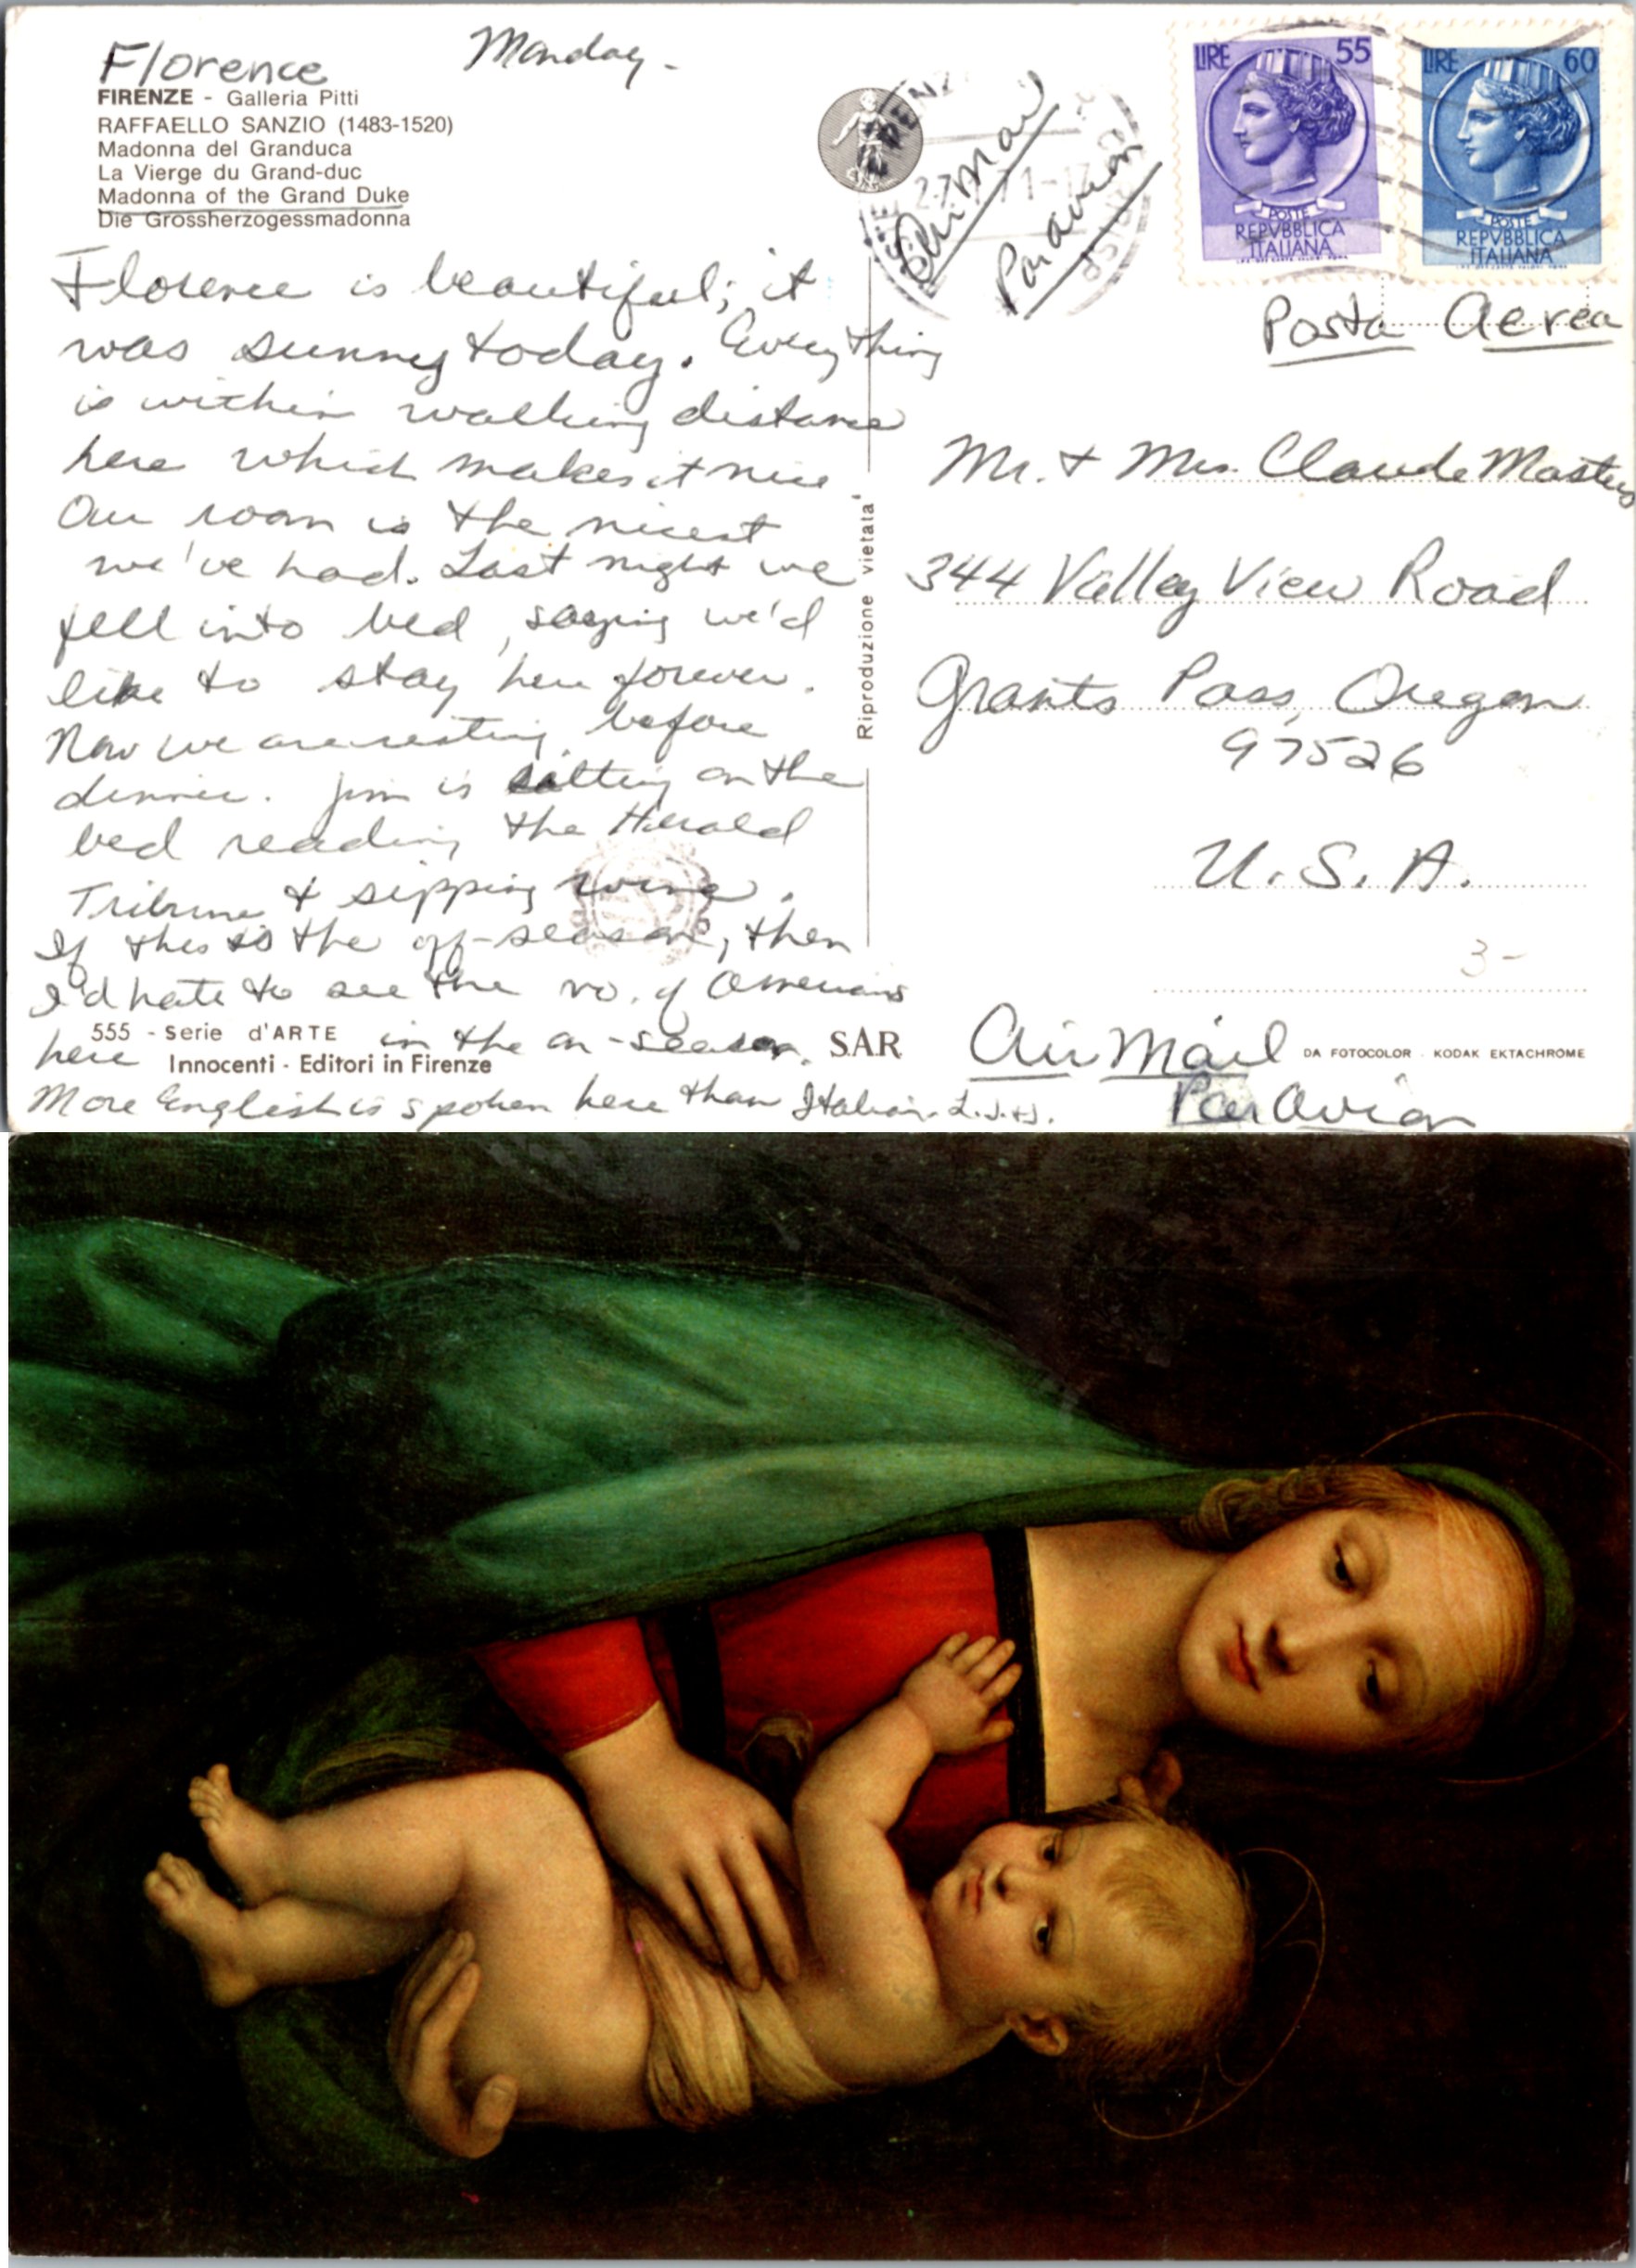 Florence
Monday-
FIRENZE - Galleria Pitti
RAFFAELLO SANZIO (1483-1520)
Madonna del Granduca
La Vierge du Grand-duc
Madonna of the Grand Duke
Die Grossherzogessmadonna
Florence is beautiful; it
was sunny today. Everything
is within walking distance
here which makes it nice
Our room is the nicest
we've had. Last night we
fell into bed, saying we'd
like to stay here forever.
Now we are resting before
dinner. Jim is sitting on the
bed reading the Herald
Tribune & sipping wine.
If this is the off-season, then
I'd hate to see the no. of Americans
here in the on-season.
More English is spoken here than Italian. L. J. & J.
555 - Serie d'ARTE
Innocenti - Editori in Firenze
S.A.R.
Riproduzione vietata
Air Mail
Par avion
LIRE 55
POSTE
REPVBBLICA
ITALIANA
LIRE 60
POSTE
REPVBBLICA
ITALIANA
Posta Aerea
Mr. & Mrs. Claude Masters
344 Valley View Road
Grants Pass, Oregon
97526
U. S. A.
3-
Air Mail
Par Avion
DA FOTOCOLOR - KODAK EKTACHROME